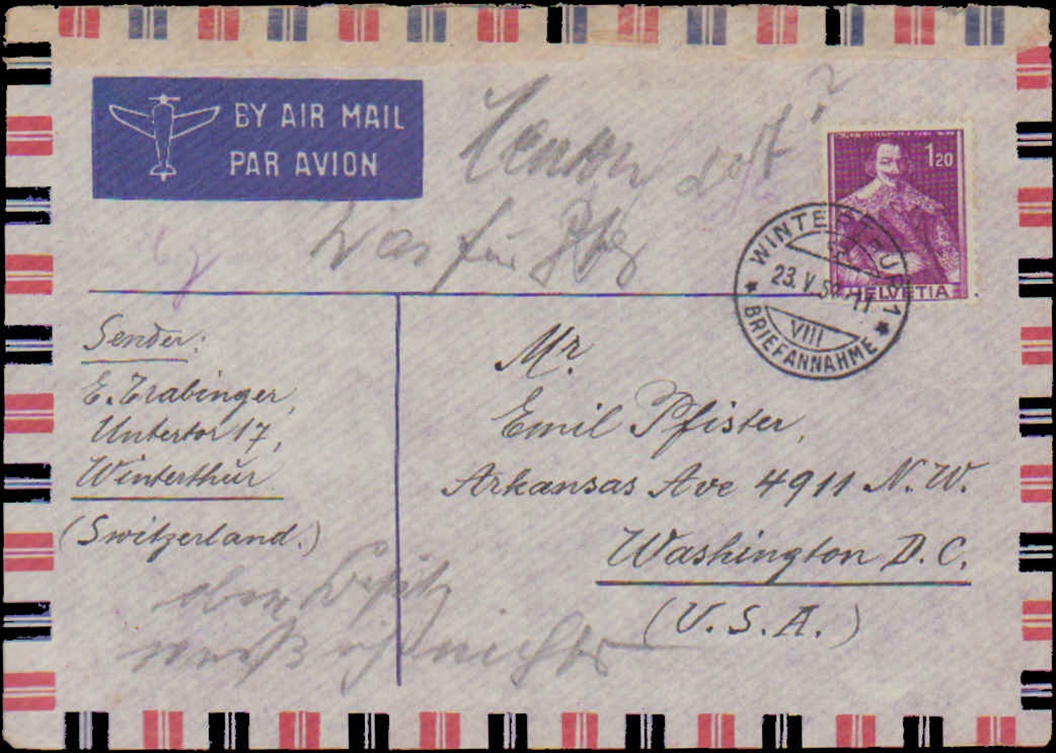 BY AIR MAIL
PAR AVION
1 20
HELVETIA
WINTERTHUR 1
23. V. 5
VIII
BRIEFANNAHME
was für
Sender:
E. Trabinger,
Untertor 17,
Winterthur
(Switzerland.)
Mr.
Emil Pfister,
Arkansas Ave 4911 N.W.
Washington D.C.
(U.S.A.)
weiß ich nichts